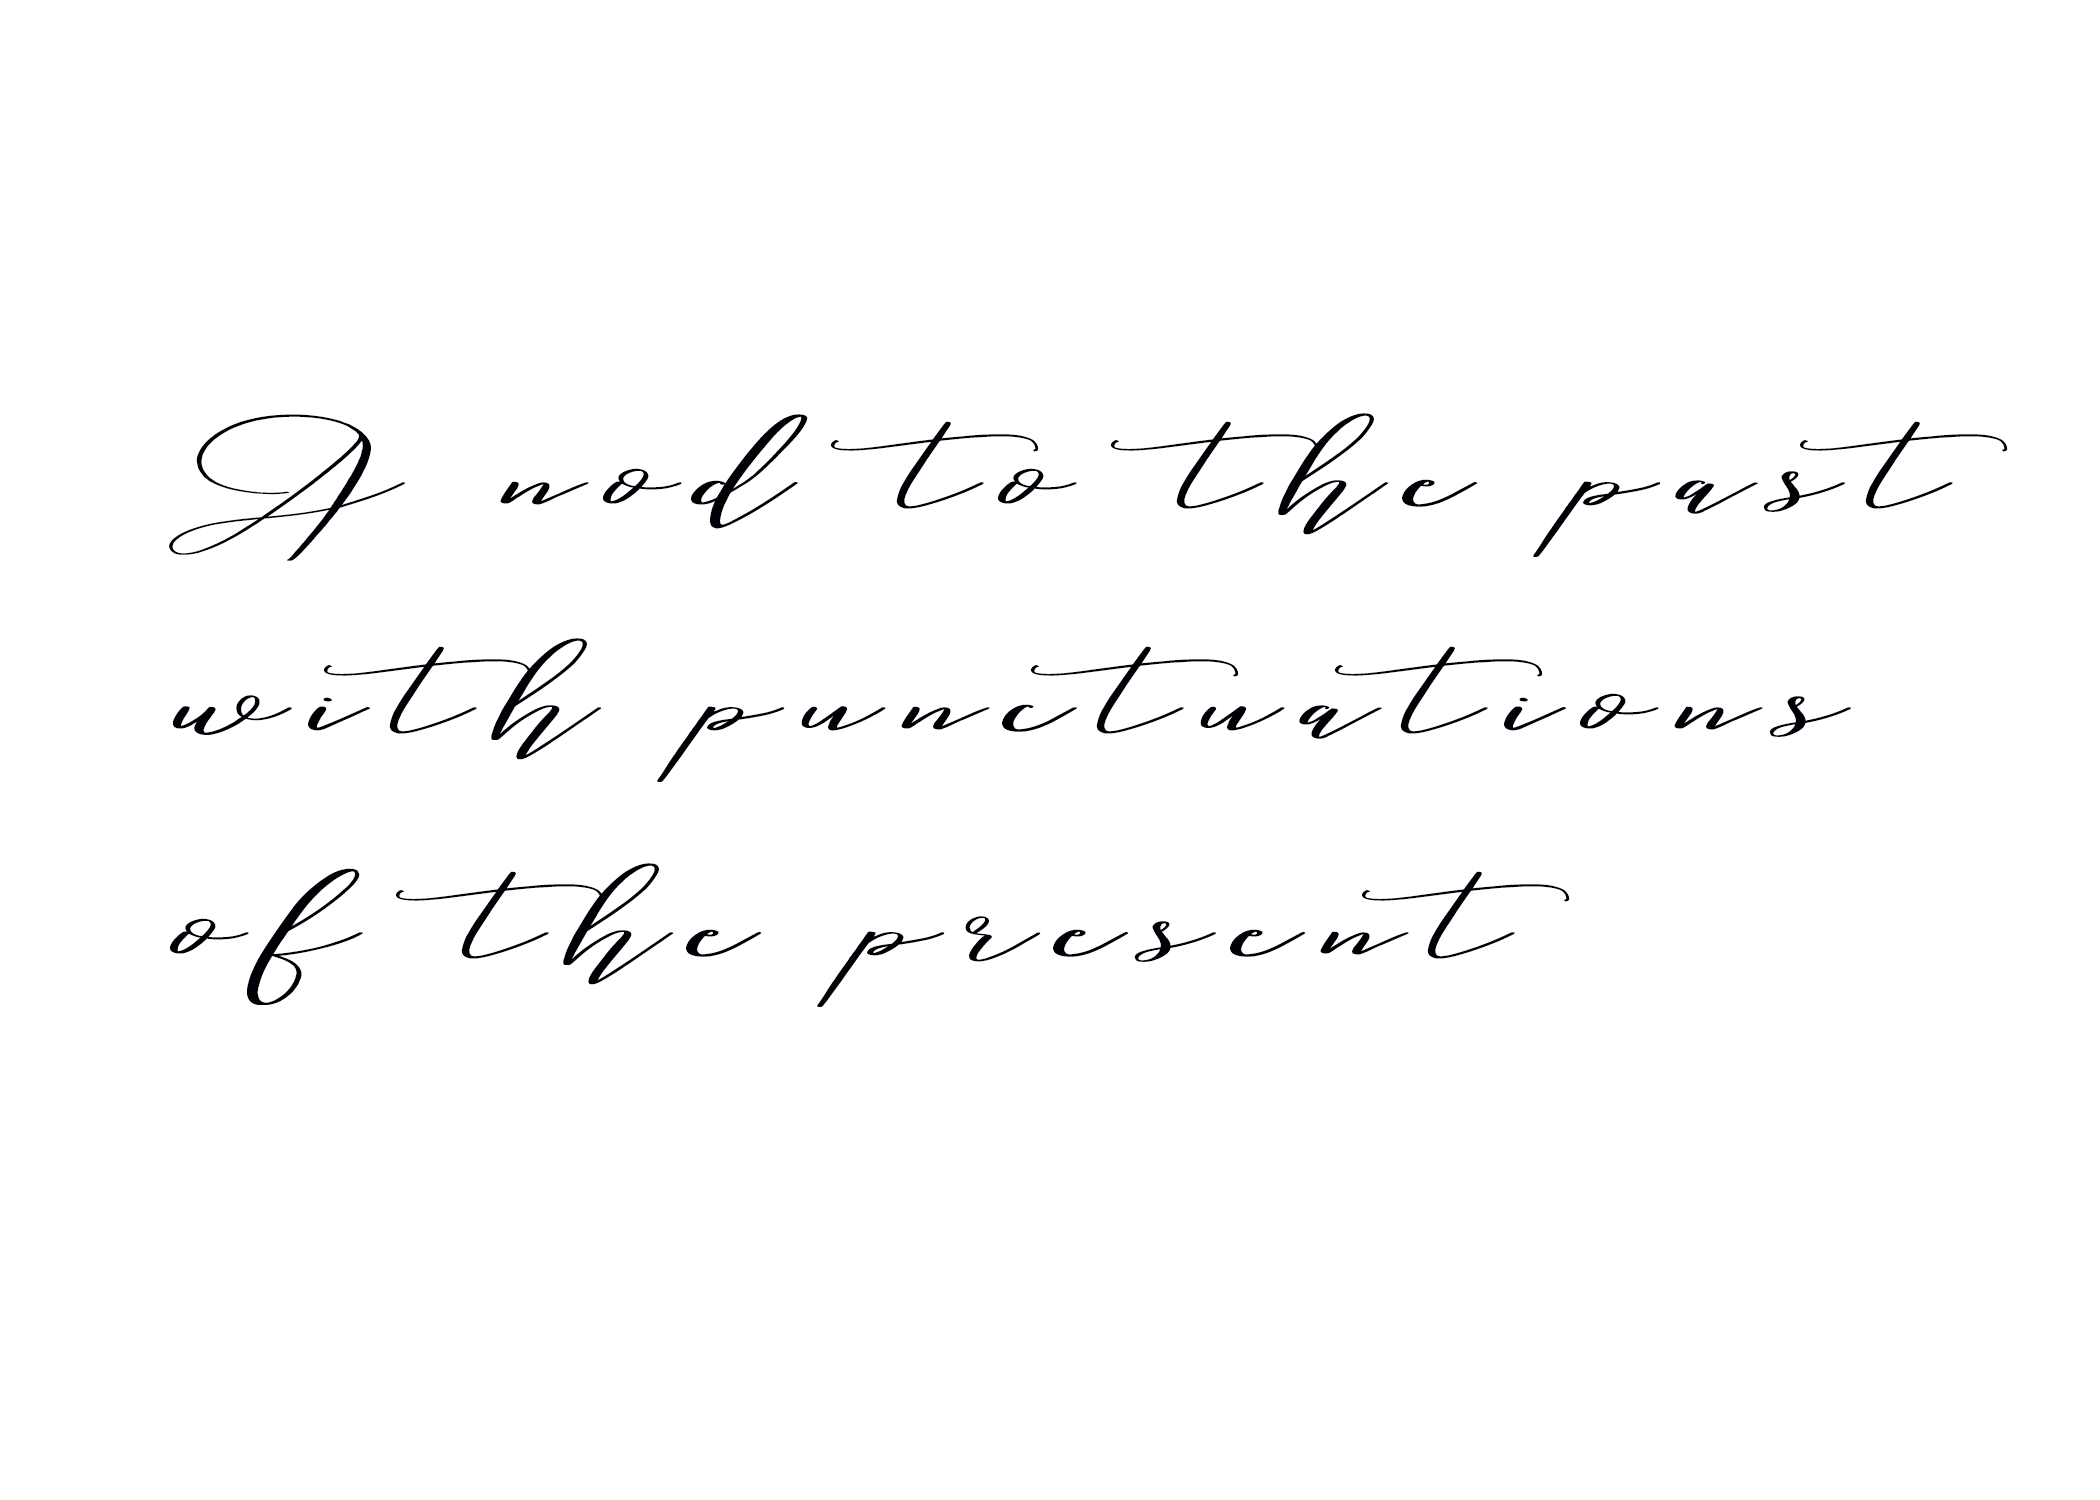 A nod to the past
with punctuations
of the present